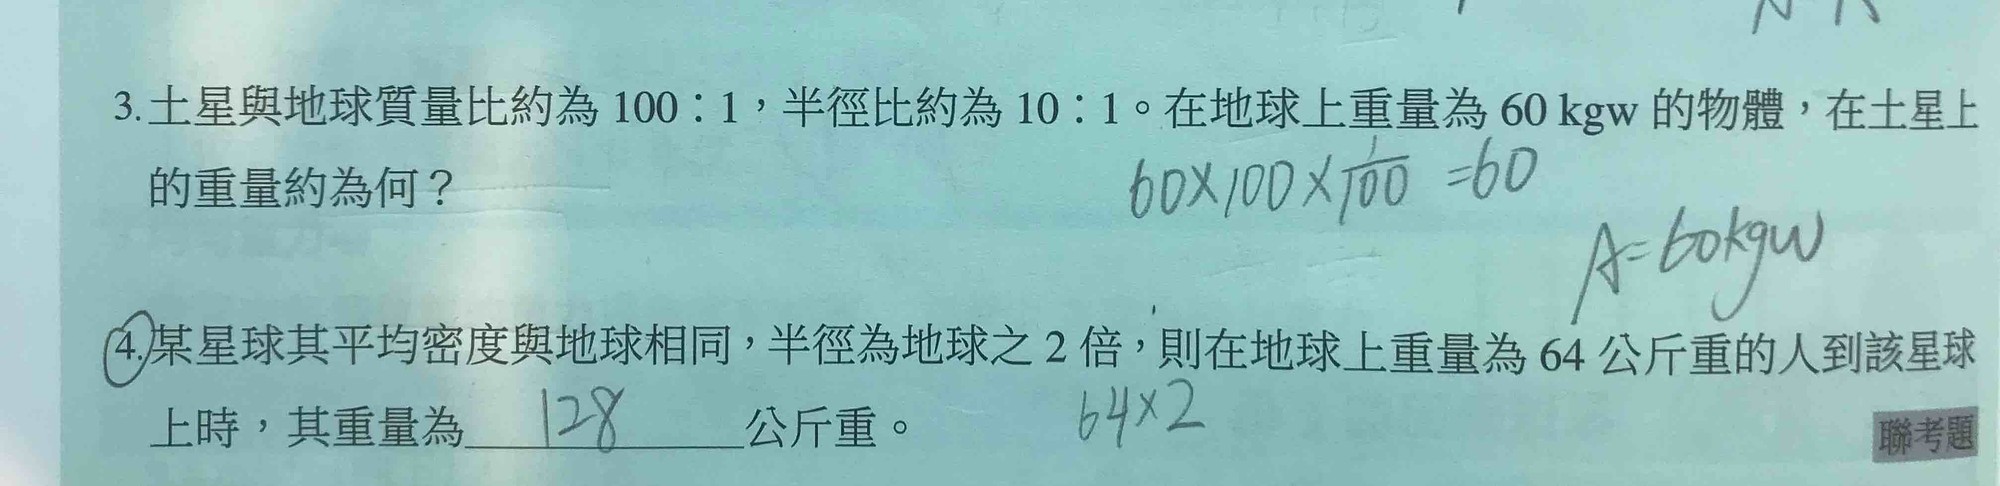 3.土星與地球質量比約為 100：1，半徑比約為 10：1。在地球上重量為 60 kgw 的物體，在土星上
的重量約為何？
60×100×1/100=60
A=60kgw
4.某星球其平均密度與地球相同，半徑為地球之 2 倍，則在地球上重量為 64 公斤重的人到該星球
上時，其重量為 128 公斤重。
64×2
聯考題